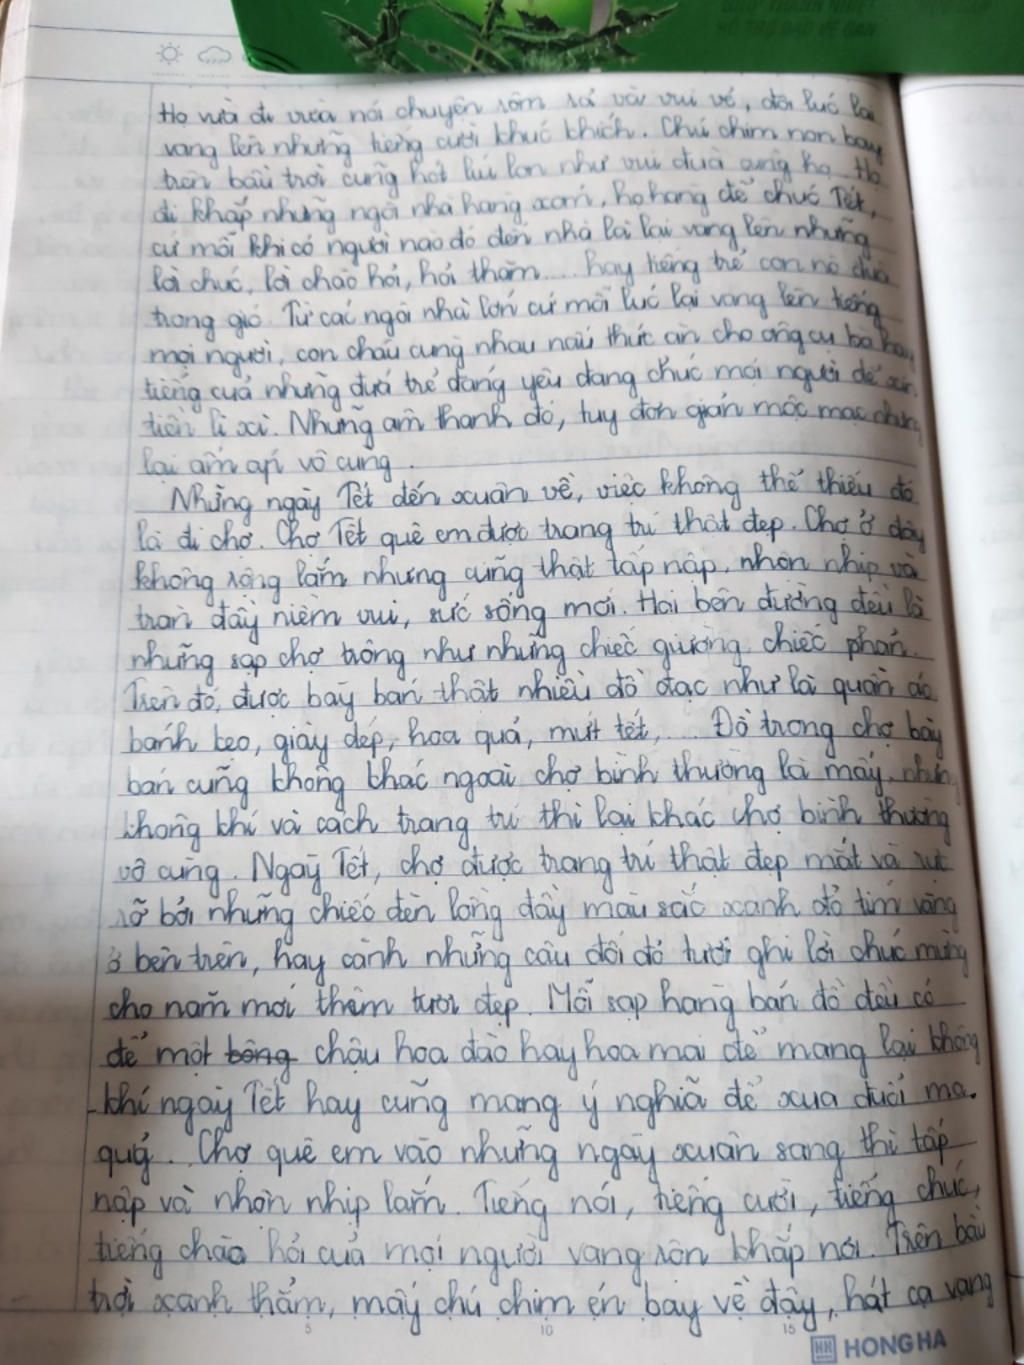 Họ vừa đi vừa nói chuyện rôm rả vời vui vẻ, đôi lúc lại
vang lên những tiếng cười khúc khích. Chú chim non bay
trên bầu trời cũng hót líu lon như vui đùa cùng họ. Họ
đi khắp những ngôi nhà hàng xóm, họ hàng để chúc Tết,
cứ mỗi khi có người nào đó đến nhà là lại vang lên những
lời chúc, lời chào hỏi, hỏi thăm.... hay tiếng trẻ con nô đùa
trong gió. Từ các ngôi nhà lớn cứ mỗi lúc lại vang lên tiếng
mọi người, con cháu cùng nhau nấu thức ăn cho ông cụ bà hay
tiếng của những đứa trẻ đáng yêu đang chúc mọi người để xin
tiền lì xì. Những âm thanh đó, tuy đơn giản mộc mạc nhưng
lại ấm áp vô cùng.
Những ngày Tết đến xuân về, việc không thể thiếu đó
là đi chợ. Chợ Tết quê em được trang trí thật đẹp. Chợ ở đây
không rộng lắm nhưng cũng thật tấp nập, nhộn nhịp và
tràn đầy niềm vui, sức sống mới. Hai bên đường đều là
những sạp chợ trông như những chiếc giường, chiếc phản.
Trên đó, được bày bán thật nhiều đồ đạc như là quần áo
bánh kẹo, giày dép, hoa quả, mứt tết,.... Đồ trong chợ bày
bán cũng không khác ngoài chợ bình thường là mấy, nhưng
không khí và cách trang trí thì lại khác chợ bình thường
vô cùng. Ngày Tết, chợ được trang trí thật đẹp mắt và rực
rỡ bởi những chiếc đèn lồng đầy màu sắc xanh đỏ tím vàng
ở bên trên, hay cành những câu đối đỏ tươi ghi lời chúc mừng
cho năm mới thêm tươi đẹp. Mỗi sạp hàng bán đồ đều có
để một bông chậu hoa đào hay hoa mai để mang lại không
khí ngày Tết hay cũng mang ý nghĩa để xua đuổi ma
quỷ. Chợ quê em vào những ngày xuân sang thì tấp
nập và nhộn nhịp lắm. Tiếng nói, tiếng cười, tiếng chúc,
tiếng chào hỏi của mọi người vang rộn khắp nơi. Trên bầu
trời xanh thẳm, mấy chú chim én bay về đây, hát ca vang
5 10 15
HH HONG HA